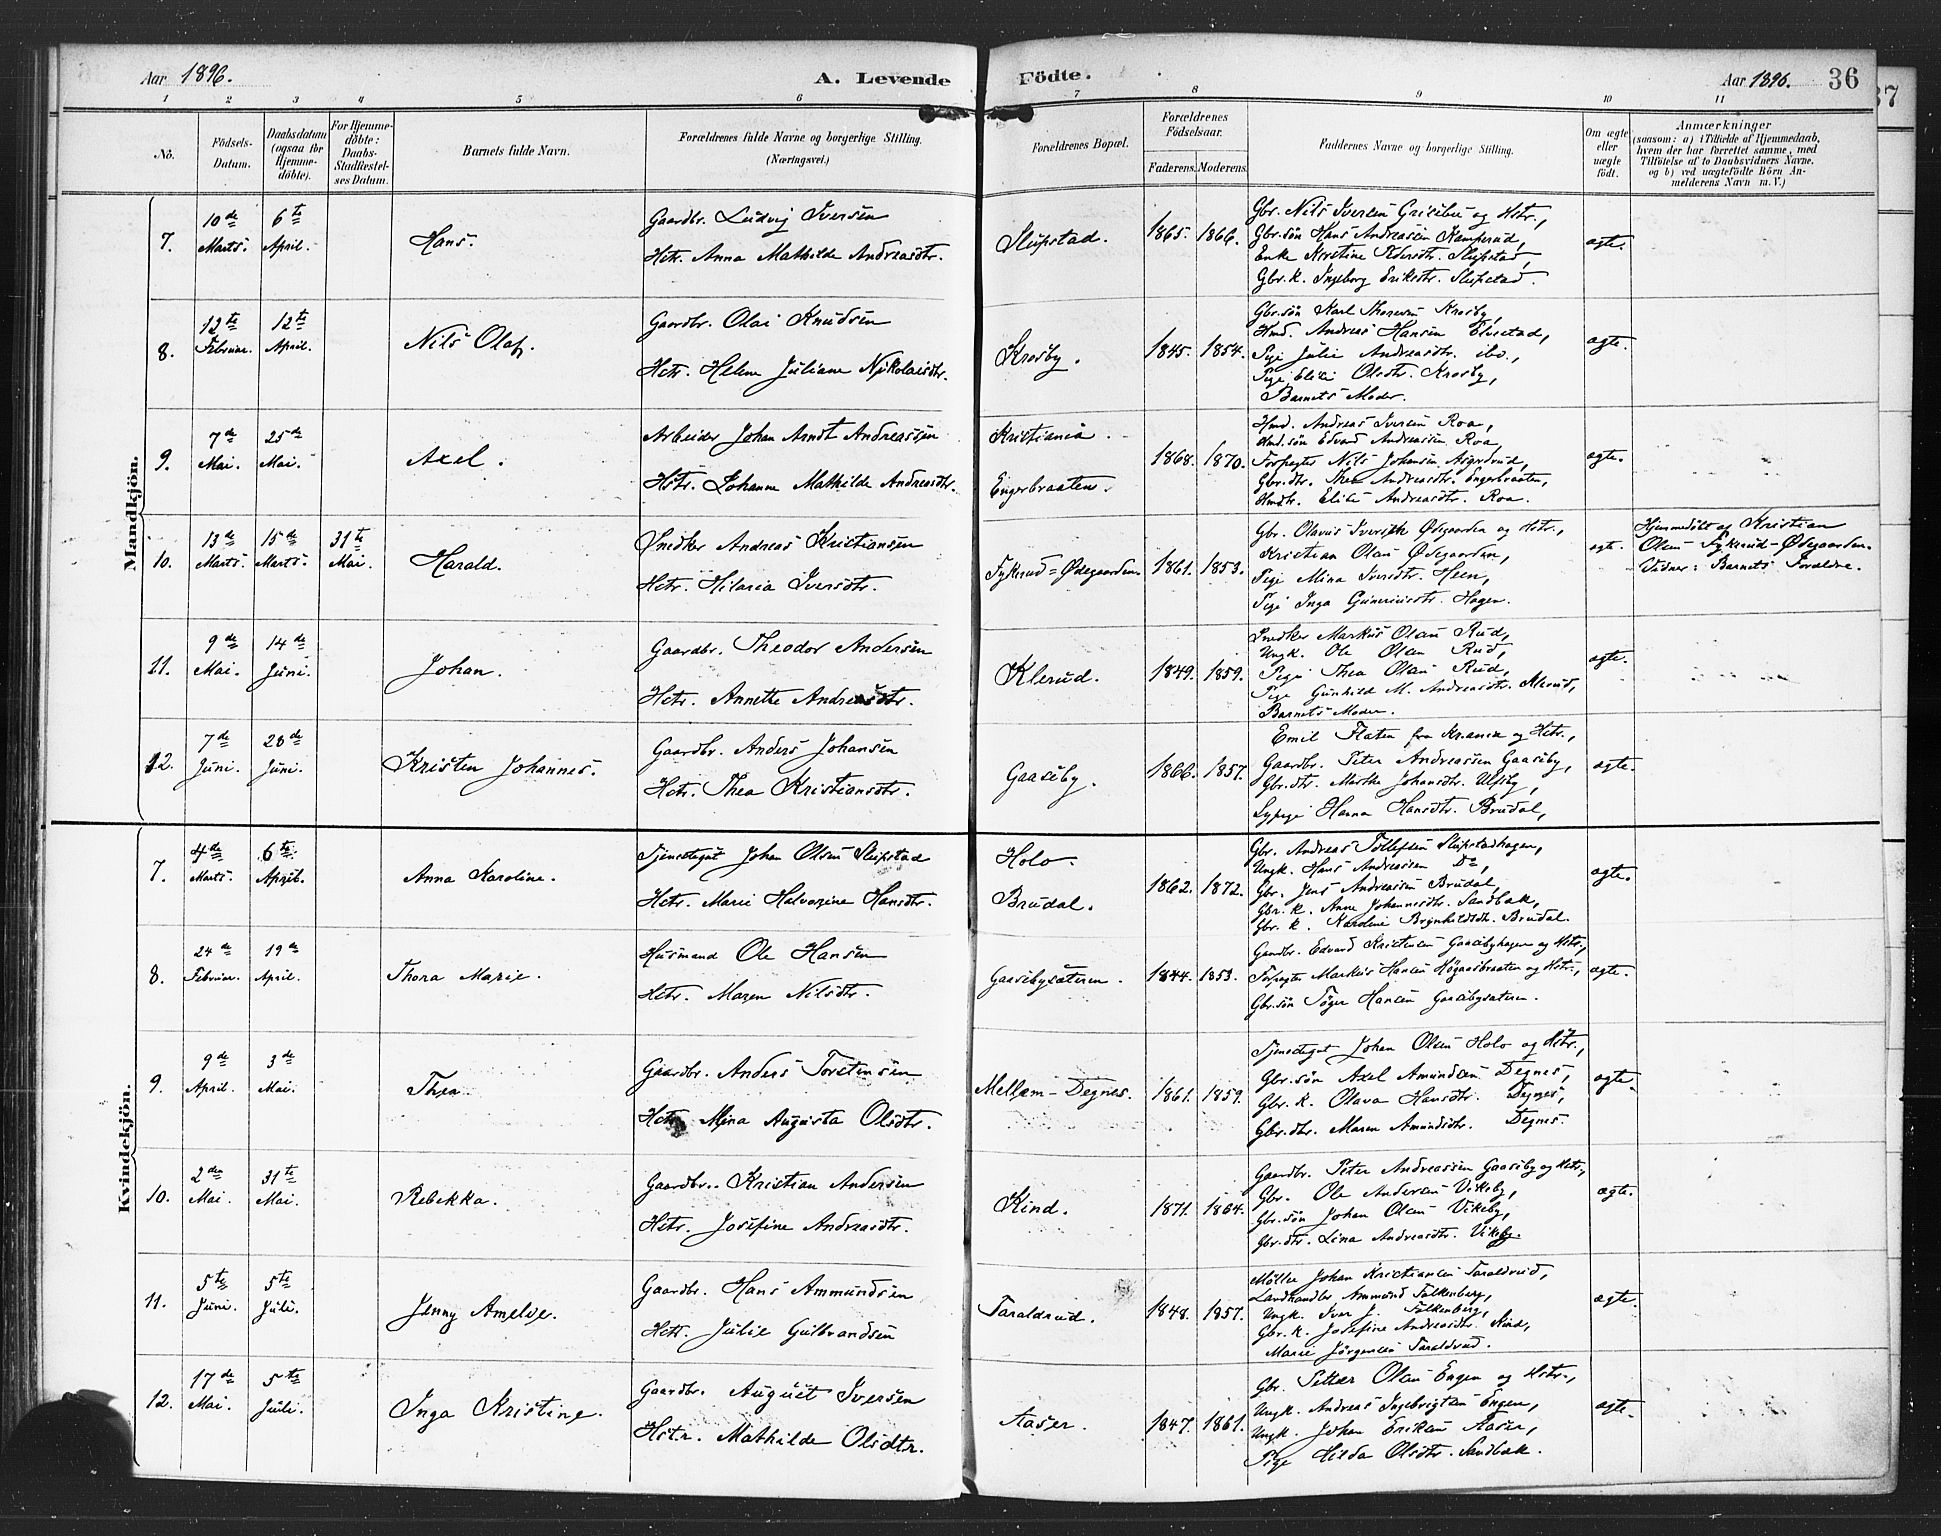 Aar 1896.
A. Levende
Födte.
Aar 1896.
36
37
1 2 3 4 5 6 7 8 9 10 11
No.
Födsels-
Datum.
Daabsdatum
(ogsaa for
Hjemme-
döbte).
For Hjemme-
döbte:
Daabs-
Stadfæstel-
ses Datum.
Barnets fulde Navn.
Forældrenes fulde Navne og borgerlige Stilling.
(Næringsvei.)
Forældrenes Bopæl.
Forældrenes
Födselsaar.
Faderens. Moderens.
Faddernes Navne og borgerlige Stilling.
Om ægte
eller
uægte
födt.
Anmærkninger
(saasom: a) i Tilfælde af Hjemmedaab,
hvem der har forrettet samme, med
Tilföielse af to Daabsvidners Navne,
og b) ved uægtefödte Börn An-
melderens Navn m. V.)
Mandkjön.
7.
10de
Marts.
6te
April.
Hans.
Gaardbr. Ludvig Iversen
Hstr. Anna Mathilde Andreasdtr.
Slupstad.
1865. 1866.
Gbr. Nils Iversen Griseby og Hstr.,
Gbr.søn Hans Andreassen Kamperud,
Enke Kristine Pedersdtr. Slupstad,
Gbr.k. Ingeborg Eriksdtr. Slupstad.
ægte.
8.
12te
Februar.
12te
April.
Nils Olaf.
Gaardbr. Olai Knudsen
Hstr. Helene Juliane Nikolaisdtr.
Krosby.
1845. 1854.
Gbr.søn Karl Thoresen Krosby,
Hmd. Andreas Hansen Elvestad,
Pige Julie Andreasdtr. ibd.,
Pige Elise Olsdtr. Krosby,
Barnets Moder.
ægte.
9.
7de
Mai.
25de
Mai.
Axel.
Arbeider Johan Arndt Andreassen
Hstr. Johanne Mathilde Andreasdtr.
Kristiania.
Engerbraaten.
1868. 1870.
Hmd. Andreas Iversen Roa,
Hmd.søn Edvard Andreassen Roa,
Forpagter Nils Johansen Asgerdrud,
Gbr.dtr. Thea Andreasdtr. Engerbraaten,
Hmdtr. Elise Andreasdtr. Roa.
ægte.
10.
13de
Marts.
15de
Marts.
31te
Mai.
Harald.
Snedker Andreas Kristiansen
Hstr. Hilaria Iversdtr.
Fykerud=Ødegaarden.
1861. 1853.
Gbr. Olavus Ødegaarden og Hstr.,
Kristian Olsen Ødegaarden,
Pige Mina Iversdtr. Heen,
Pige Inga Guneriusdtr. Hagen.
ægte.
Hjemmedöbt af Kristian
Olsen Fykerud-Ødegaarden.
Vidner: Barnets Forældre.
11.
9de
Mai.
14de
Juni.
Johan.
Gaardbr. Theodor Andersen
Hstr. Annette Andreasdtr.
Klerud.
1849. 1859.
Snedker Markus Olsen Rud,
Ungk. Ole Olsen Rud,
Pige Thea Olsen Rud,
Pige Gunhild M. Andreasdtr. Klerud,
Barnets Moder.
ægte.
12.
7de
Juni.
28de
Juni.
Kristen Johannes.
Gaardbr. Anders Johansen
Hstr. Thea Kristiansdtr.
Gaaseby.
1866. 1857.
Emil Flaten fra Krania og Hstr.,
Gaardbr. Peter Andreassen Gaaseby,
Gbr.dtr. Marthe Johansdtr. Ulfsby,
Sypige Hanna Hansdtr. Brudal,
ægte.
Kvindekjön.
7.
4de
Marts.
6te
April.
Anna Karoline.
Tjenestegut Johan Olsen Slupstad
Hstr. Marie Halvorine Hansdtr.
Holo.
Brudal.
1862. 1872.
Gbr. Andreas Tollefsen Slupstadhagen,
Ungk. Hans Andreassen Do,
Gbr. Jens Andreassen Brudal,
Gbr.k. Anne Johannesdtr. Sandbæk,
Gbr.k. Karoline Brynhildsdtr. Brudal.
ægte.
8.
24de
Februar.
19de
April.
Thora Marie.
Husmand Ole Hansen
Hstr. Maren Nilsdtr.
Gaasebysæteren.
1844. 1853.
Gaardbr. Edvard Kristensen Gaasebyhagen og Hstr.,
Forpagter Markus Hansen Høgaasbraaten og Hstr.,
Gbr.søn Tøger Hansen Gaasebysæteren.
ægte.
9.
9de
April.
3de
Mai.
Thea
Gaardbr. Anders Torstensen
Hstr. Mina Augusta Olsdtr.
Mellem-Degnes.
1861. 1859.
Tjenestegut Johan Olsen Holo og Hstr.,
Gbr.søn Axel Amundsen Degnes,
Gbr.k. Olava Hansdtr. Degnes,
Gbr.dtr. Maren Amundsdtr. Degnes.
ægte.
10.
2den
Mai.
31te
Mai.
Rebekka.
Gaardbr. Kristian Andersen
Hstr. Josefine Andreasdtr.
Kind.
1871. 1864.
Gaardbr. Peter Andreassen Gaaseby og Hstr.,
Gbr. Ole Andersen Vikeby,
Gbr.søn Johan Olsen Vikeby,
Gbr.dtr. Lina Andreasdtr. Vikeby.
ægte.
11.
5te
Juni.
5te
Juli.
Jenny Amelie.
Gaardbr. Hans Ammundsen
Hstr. Julie Gulbrandsen
Taraldrud.
1848. 1857.
Møller Johan Kristiansen Taraldrud,
Landhandler Ammund Falkenberg,
Ungk. Iver J. Falkenberg,
Gbr.k. Josefine Andreasdtr. Kind,
Marie Jörgensen Taraldrud.
ægte.
12.
17de
Mai.
5te
Juli.
Inga Kristine.
Gaardbr. August Iversen
Hstr. Mathilde Olsdtr.
Aaser.
1847. 1861.
Gbr. Petter Olsen Engen og Hstr.,
Ungk. Andreas Ingebrigtsen Engen,
Ungk. Johan Eriksen Aaser,
Pige Hilda Olsdtr. Sandbæk.
ægte.